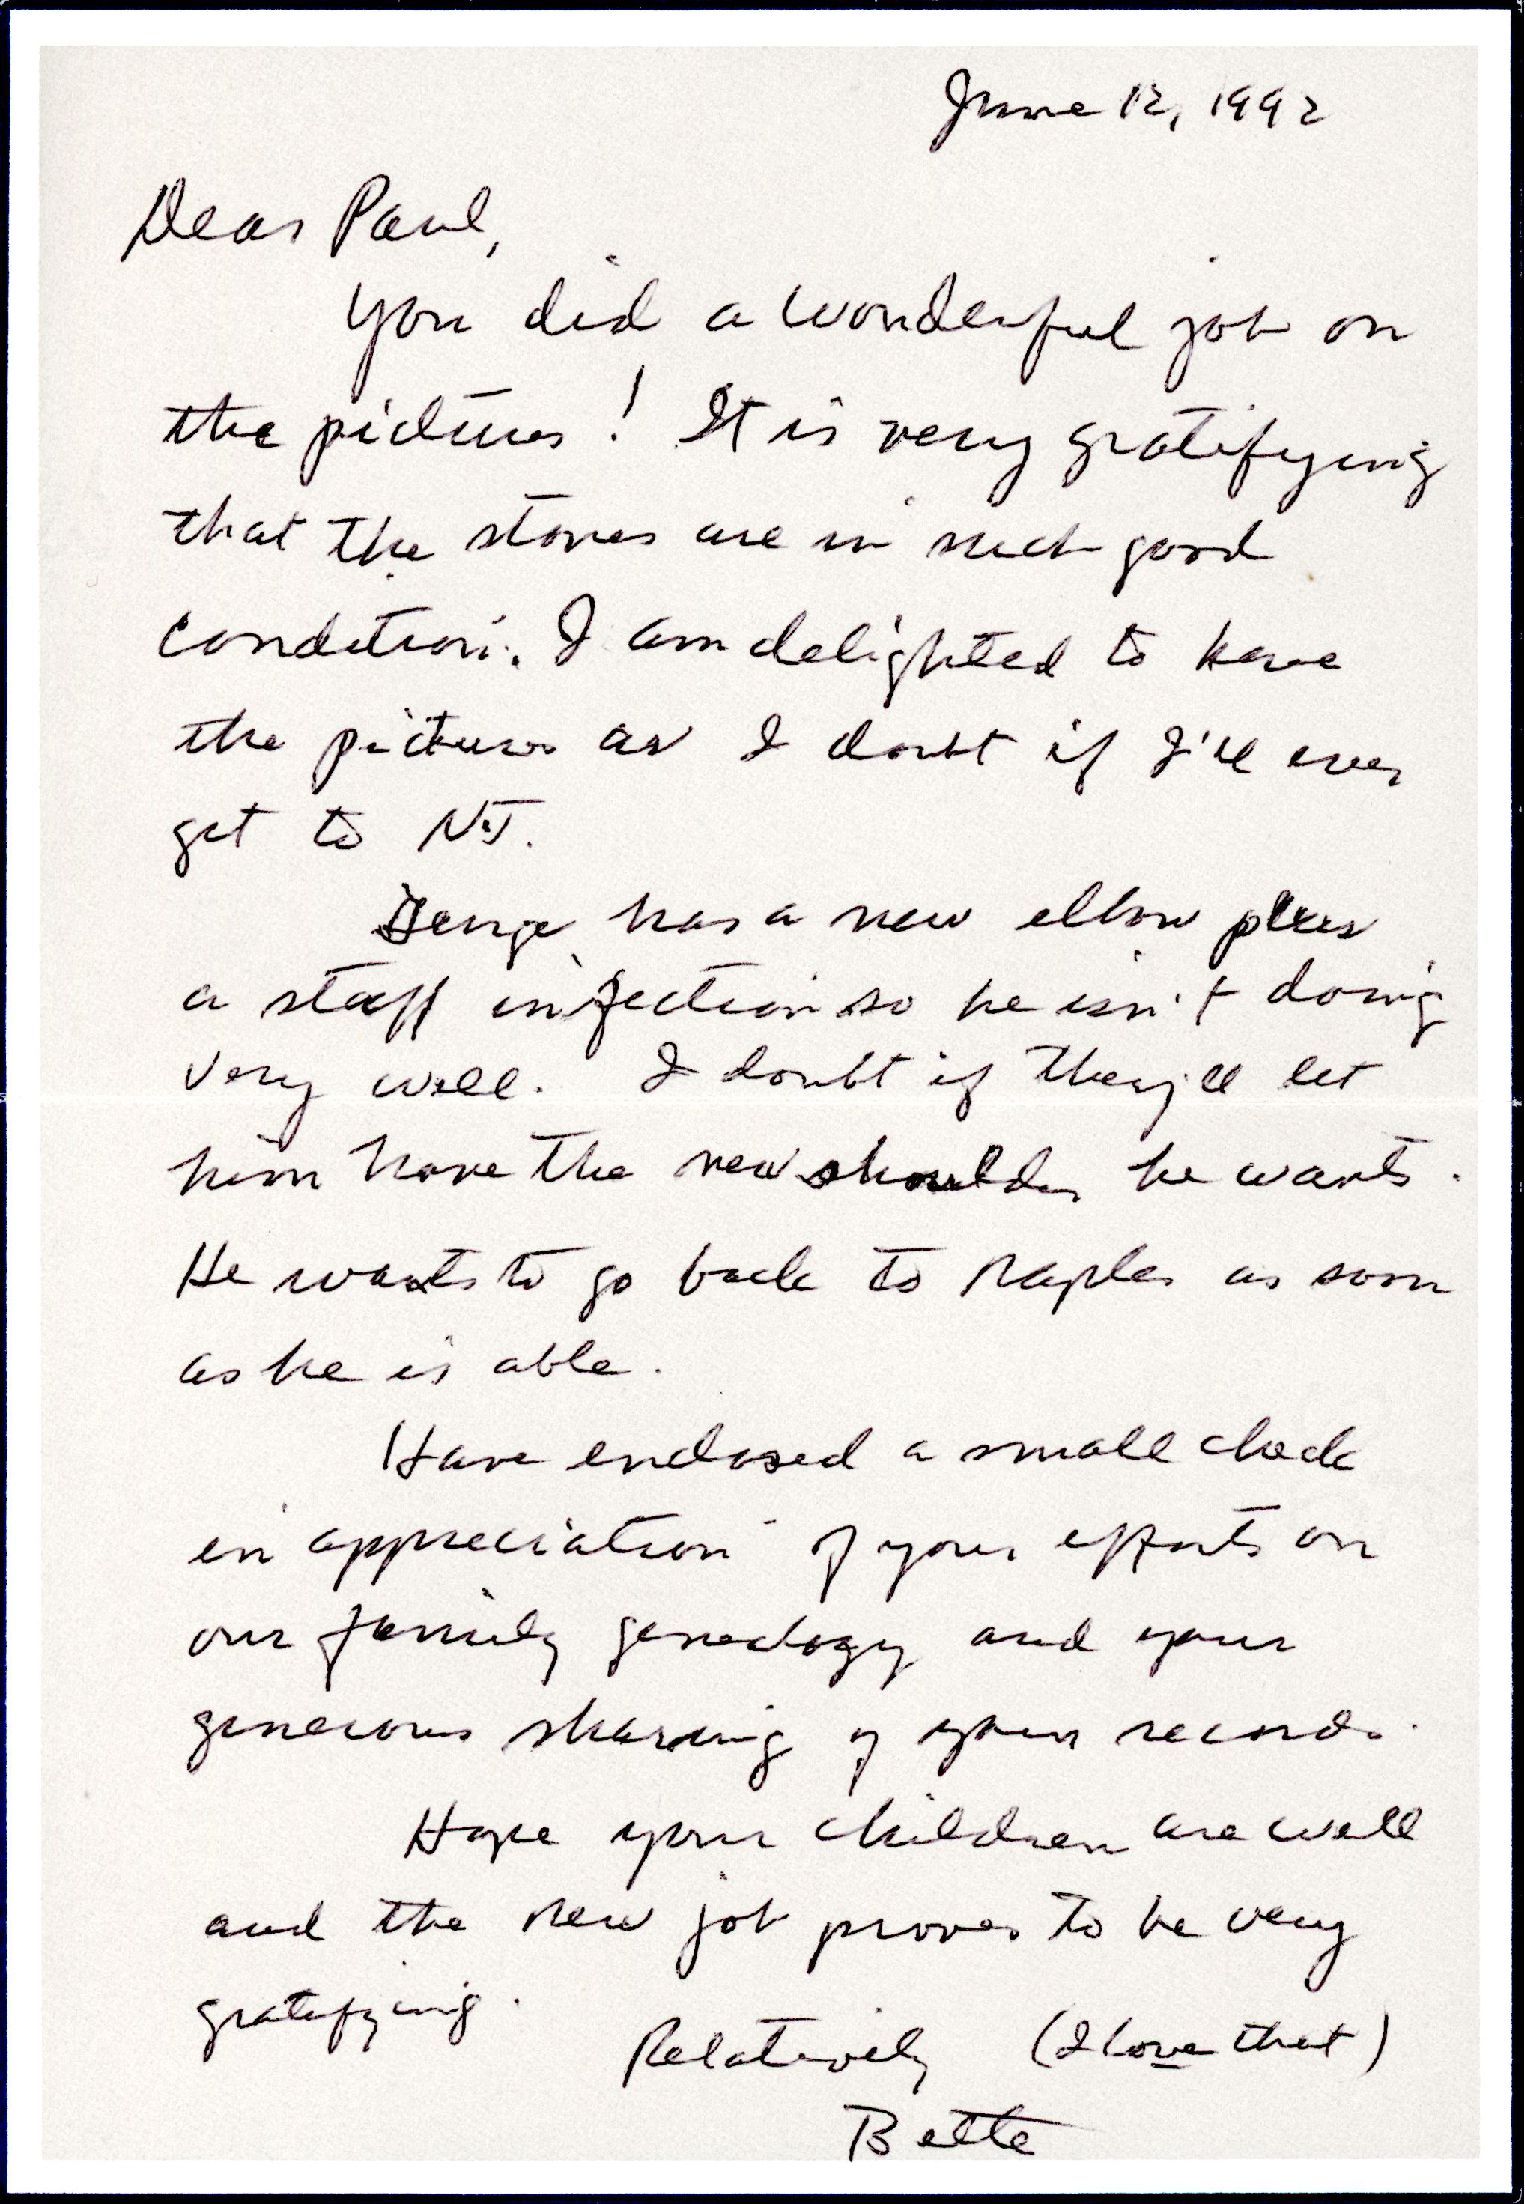 June 12, 1992
Dear Paul,
You did a wonderful job on
the pictures! It is very gratifying
that the stones are in such good
condition. I am delighted to have
the pictures as I doubt if I'll ever
get to N.J.
has a new elbow plus
a staff infection so he isn't doing
very well. I doubt if they'll let
him have the new shoulder he wants.
He wants to go back to Naples as soon
as he is able.
Have enclosed a small check
in appreciation of your efforts on
our family genealogy and your
generous sharing of your records.
Hope your children are well
and the new job proves to be very
gratifying.
Relatively (I love that)
Bette